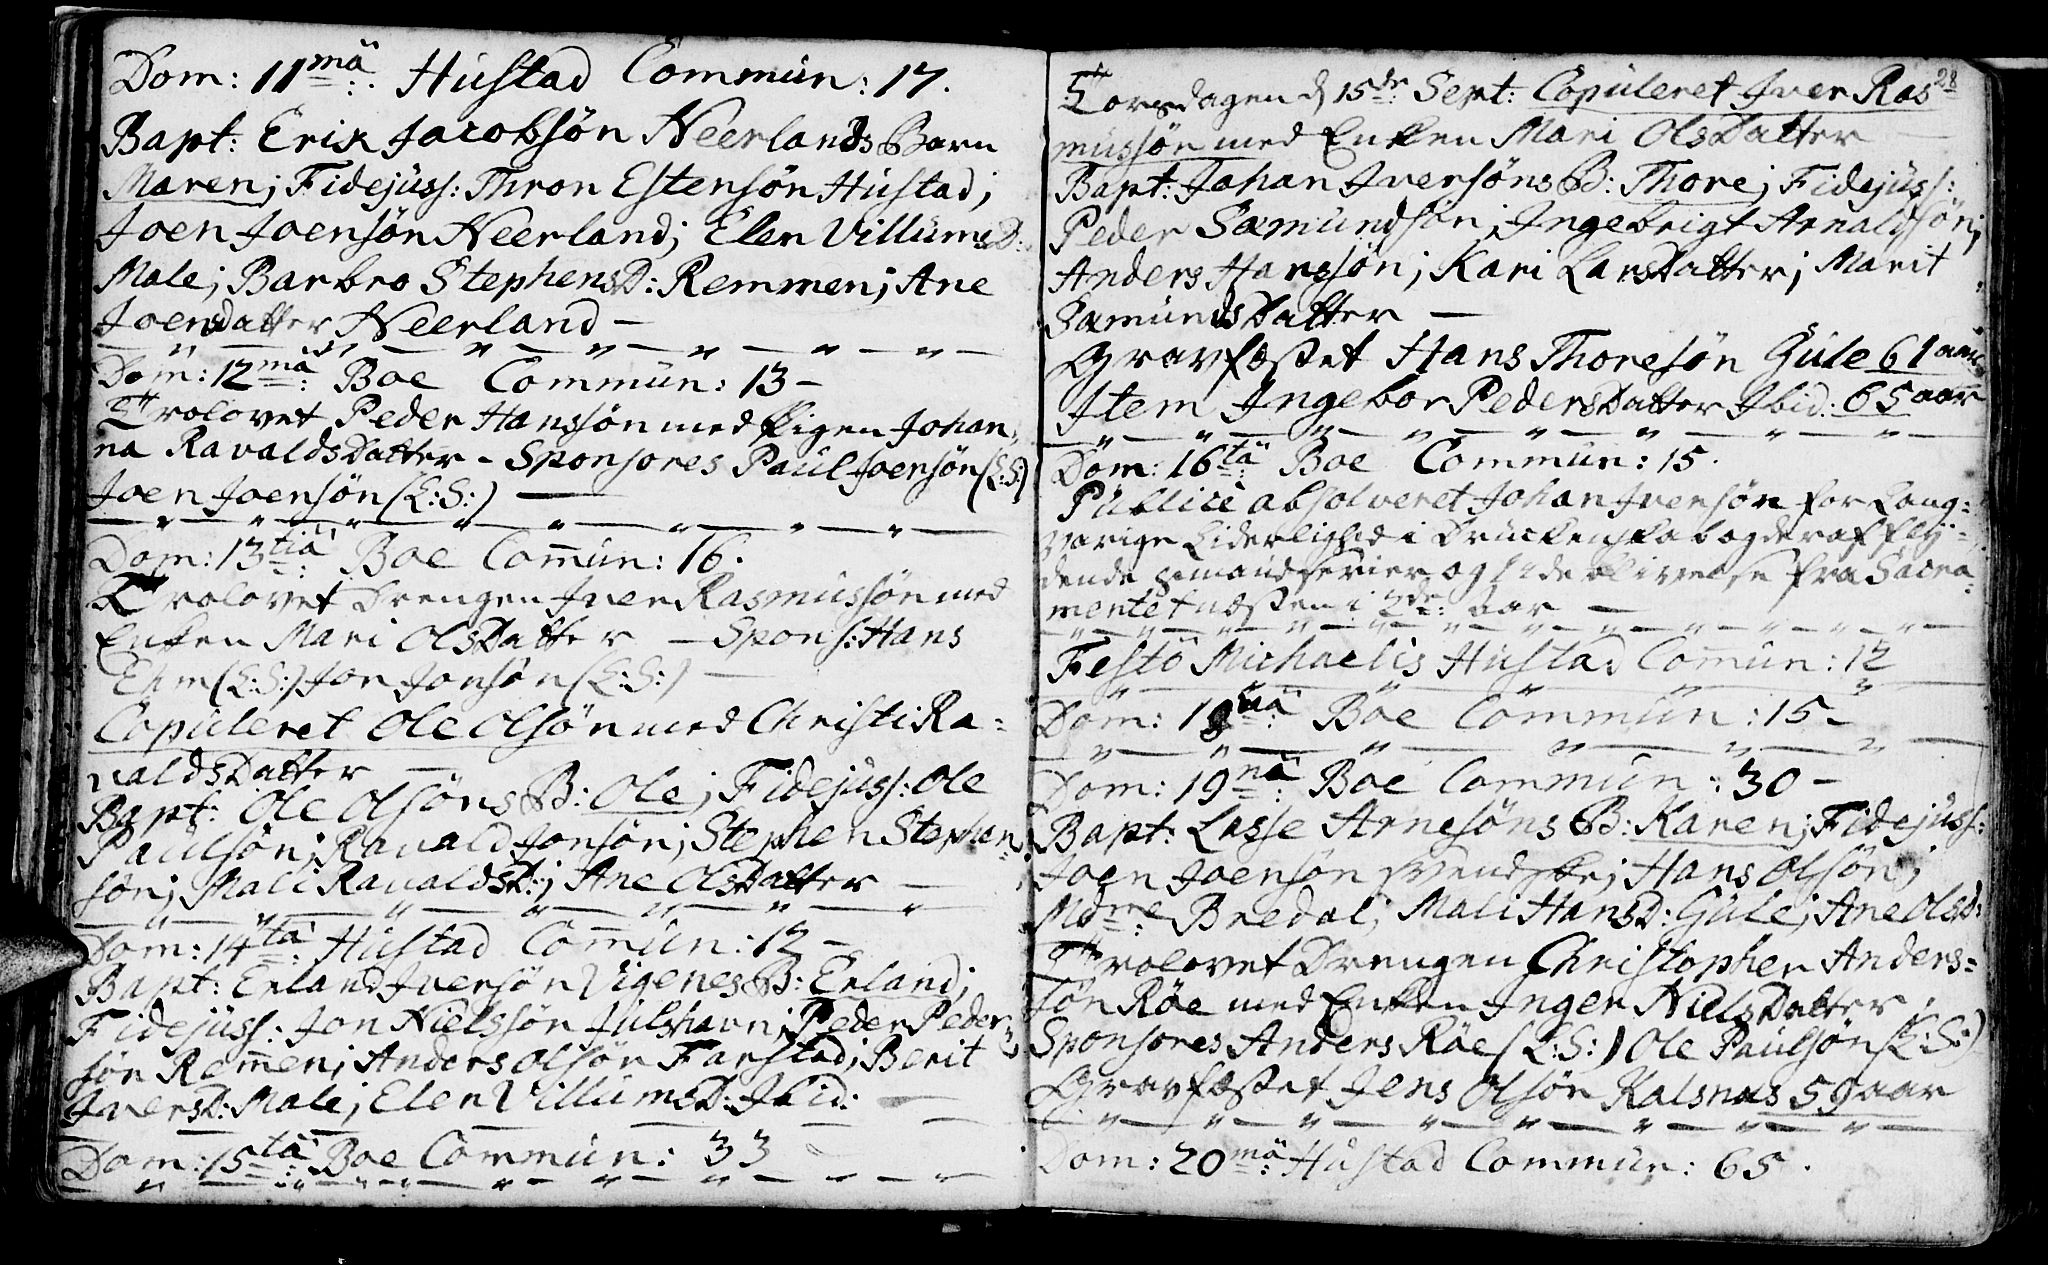 Dom: 11mä: Hustad Commun: 17.
Bapt: Erik Jacobsön Neerlands Barn
Maren; Fidejuss: Thron Estensön Hustad;
Joen Joensön Neerland; Elen Villums D:
Male; Barbro Stephens D: Remmen; Ane
Joensdatter Neerland –
Dom: 12mä: Boe Commun: 13 –
Trolovet Peder Hansøn med Pigen Johan,
na Ravalds Datter – Sponsores Paul Joensön (L:S:)
Joen Joensön (L:S:) –
Dom: 13tiä: Boe Com̄un: 16.
Trolovet Drengen Iver Rasmussön med
Enken Mari Ols Datter – Spons: Hans
Ehm (L:S:) Jon Jonsön (L:S:) –
Copuleret Ole Olsön med Christi Ra-
valds Datter –
Bapt: Ole Olsöns B: Ole; Fidejuss: Ole
Paulsön; Ravald Jonsön; Stephen Stephen-
sön; Mali Ravalds D:; Ane Ols Datter –
Dom: 14tä: Hustad Com̄un: 12 –
Bapt: Erland Iversön Vigenes B: Erland;
Fidejuss: Jon Nielssön Julshavn; Peder Peder-
sön Rem̄en; Anders Olsön Farstad; Berit
Ivers D: Male; Elen Villums D: Ibid: –
Dom: 15tä: Boe Commun: 33
28
Torsdagen d 15de: Sept: Copuleret Iver Ras
mussön med Enken Mari Ols Datter –
Bapt: Johan Iversöns B: Thore; Fidejuss:
Peder Sæmundsön; Ingebrigt Arnaldsön;
Anders Hanssön; Kari Lars Datter; Marit
Sæmunds Datter –
Gravfæstet Hans Thoresön Gule 61 aar
Item Ingebor Peders Datter Ibid: 65 aar
Dom: 16tä: Boe Commun: 15.
Publice absolveret Johan Iversön for Lang-
varige Liderlighed i Druckenskab og deraf fly-
dende og udeblivelse fra Sacra-
mentet næsten i 2de: Aar –
Festo Michaelis Hustad Com̄un: 12
Dom: 18vä: Boe Commun: 15 –
Dom: 19nä: Boe Commun: 30 –
Bapt: Lasse Arnesöns B: Karen; Fidejuss:
Joen Joensön; Hans Olsön;
Mdme: Bredal; Mali Hans D: Gule; Ane Ols D:
Trolovet Drengen Christopher Anders-
sön Röe med Enken Inger Niels Datter,
Sponsores Anders Röe (L:S:) Ole Paulsön (L:S:)
Gravfæstet Jens Olsön Kalsnæs 59 aar
Dom: 20mä: Hustad Commun: 65.